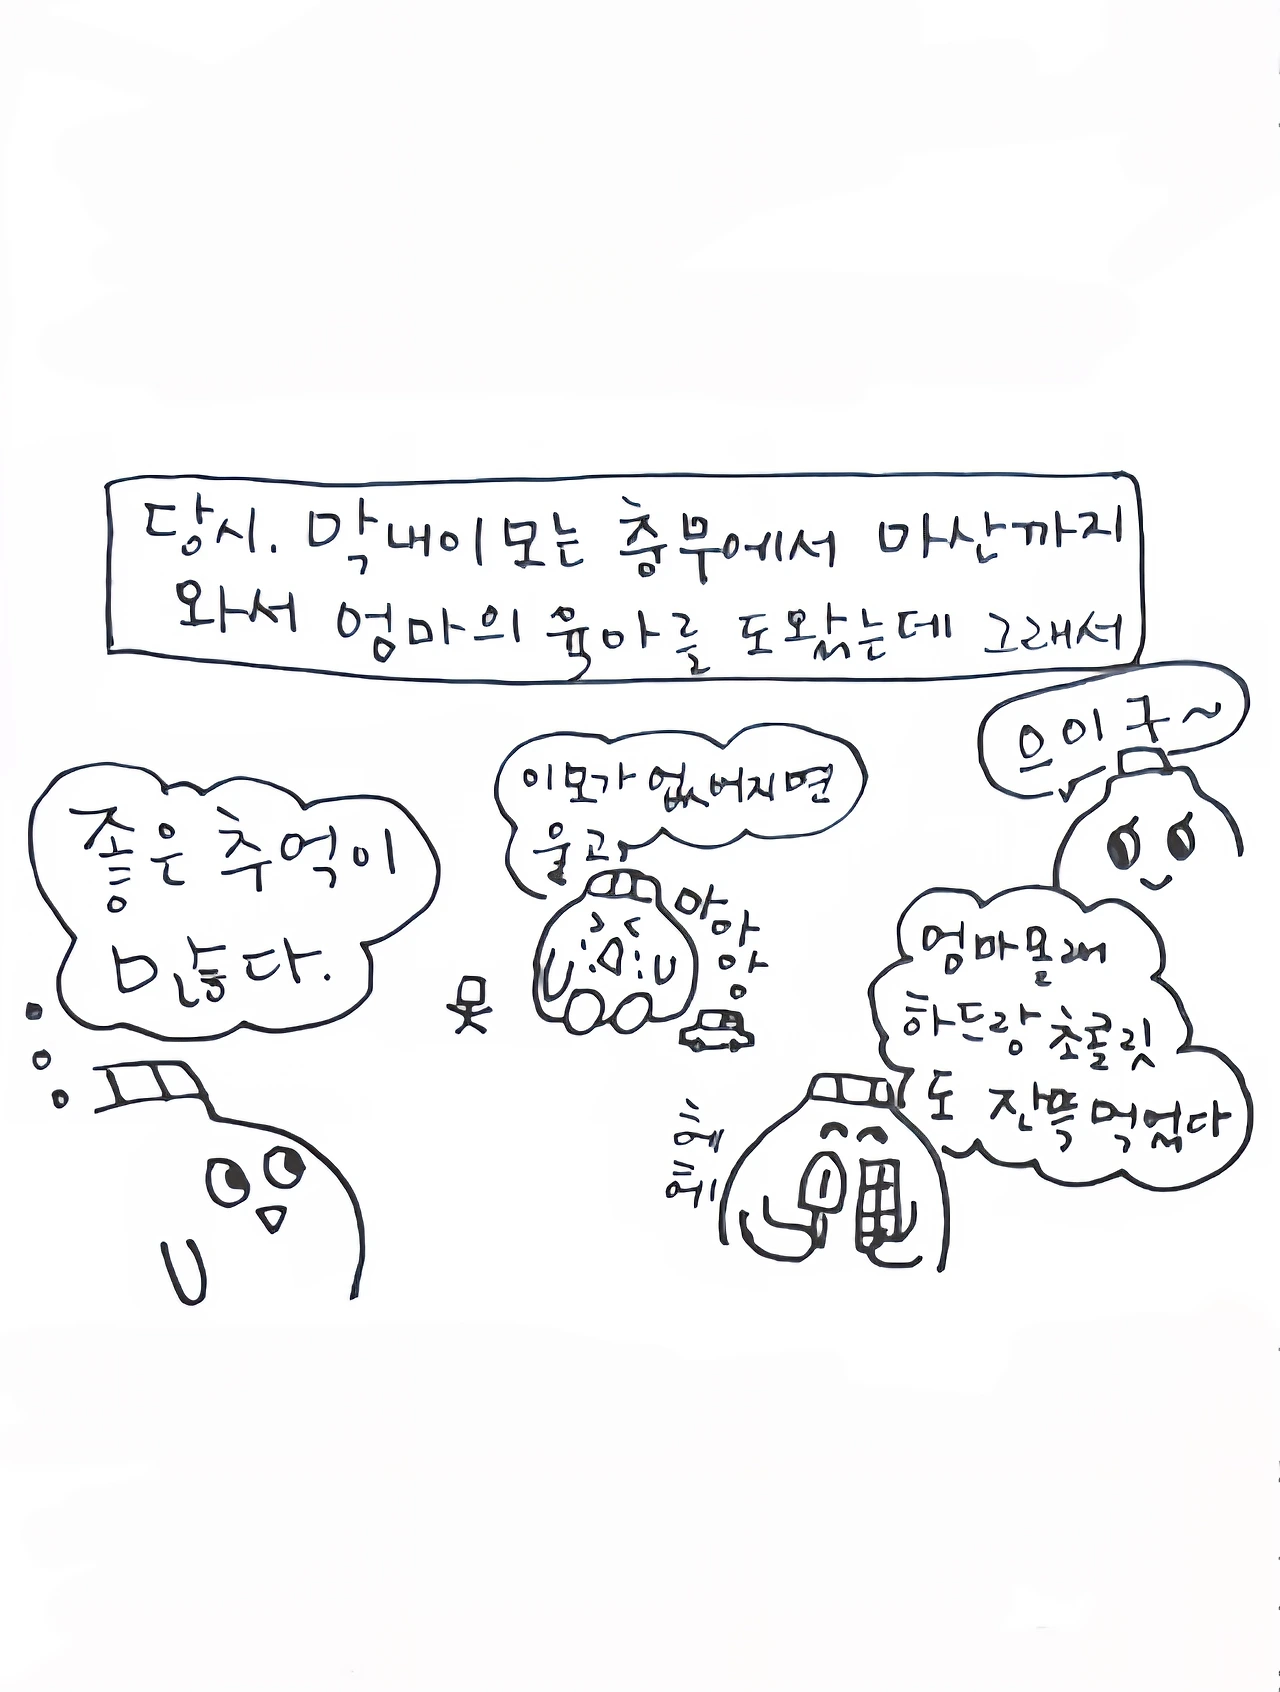 당시. 막내이모는 충무에서 마산까지
와서 엄마의 육아를 도왔는데 그래서
으이구~
좋은 추억이
많다.
이모가 없어지면
울고,
마아
앙
엄마몰래
하드랑 초콜릿
도 잔뜩 먹었다
헤
헤